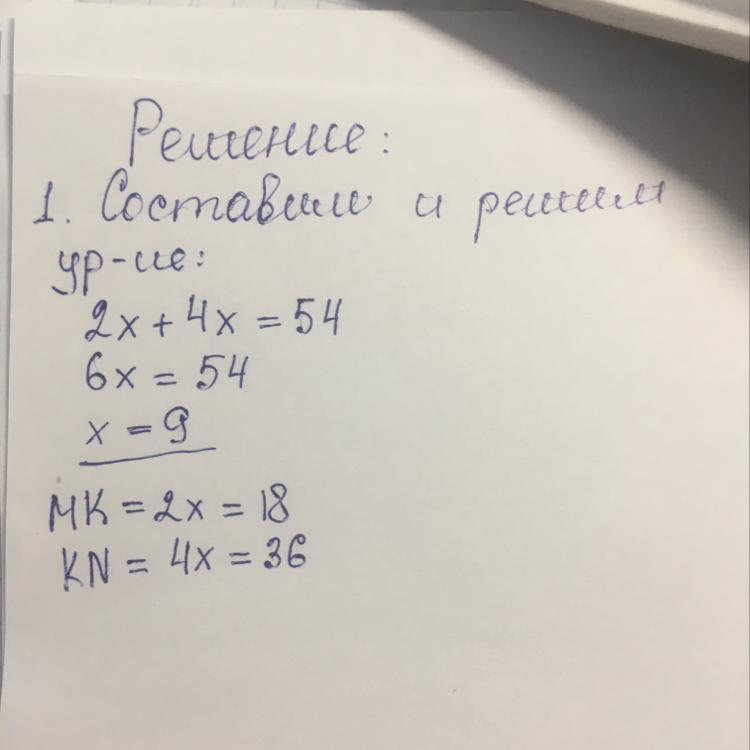 Решение:
1. Составим и решим
ур-ие:
2x + 4x = 54
6x = 54
x = 9
MK = 2x = 18
KN = 4x = 36